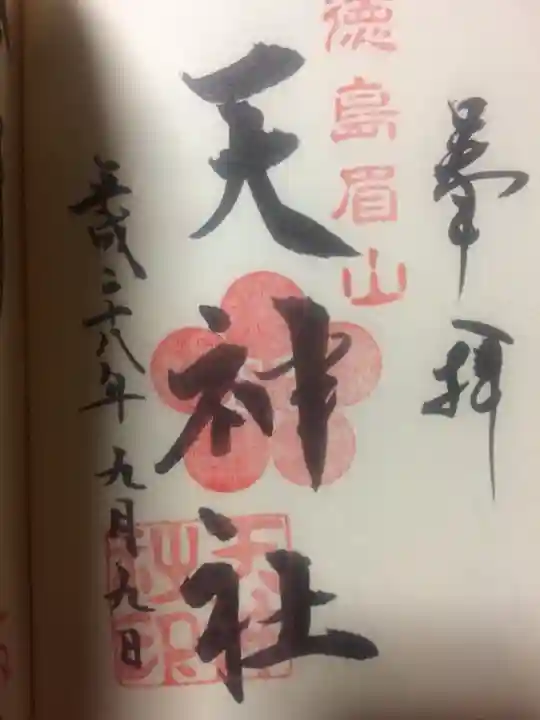 奉拝
徳島眉山
天神社
平成二十八年九月九日